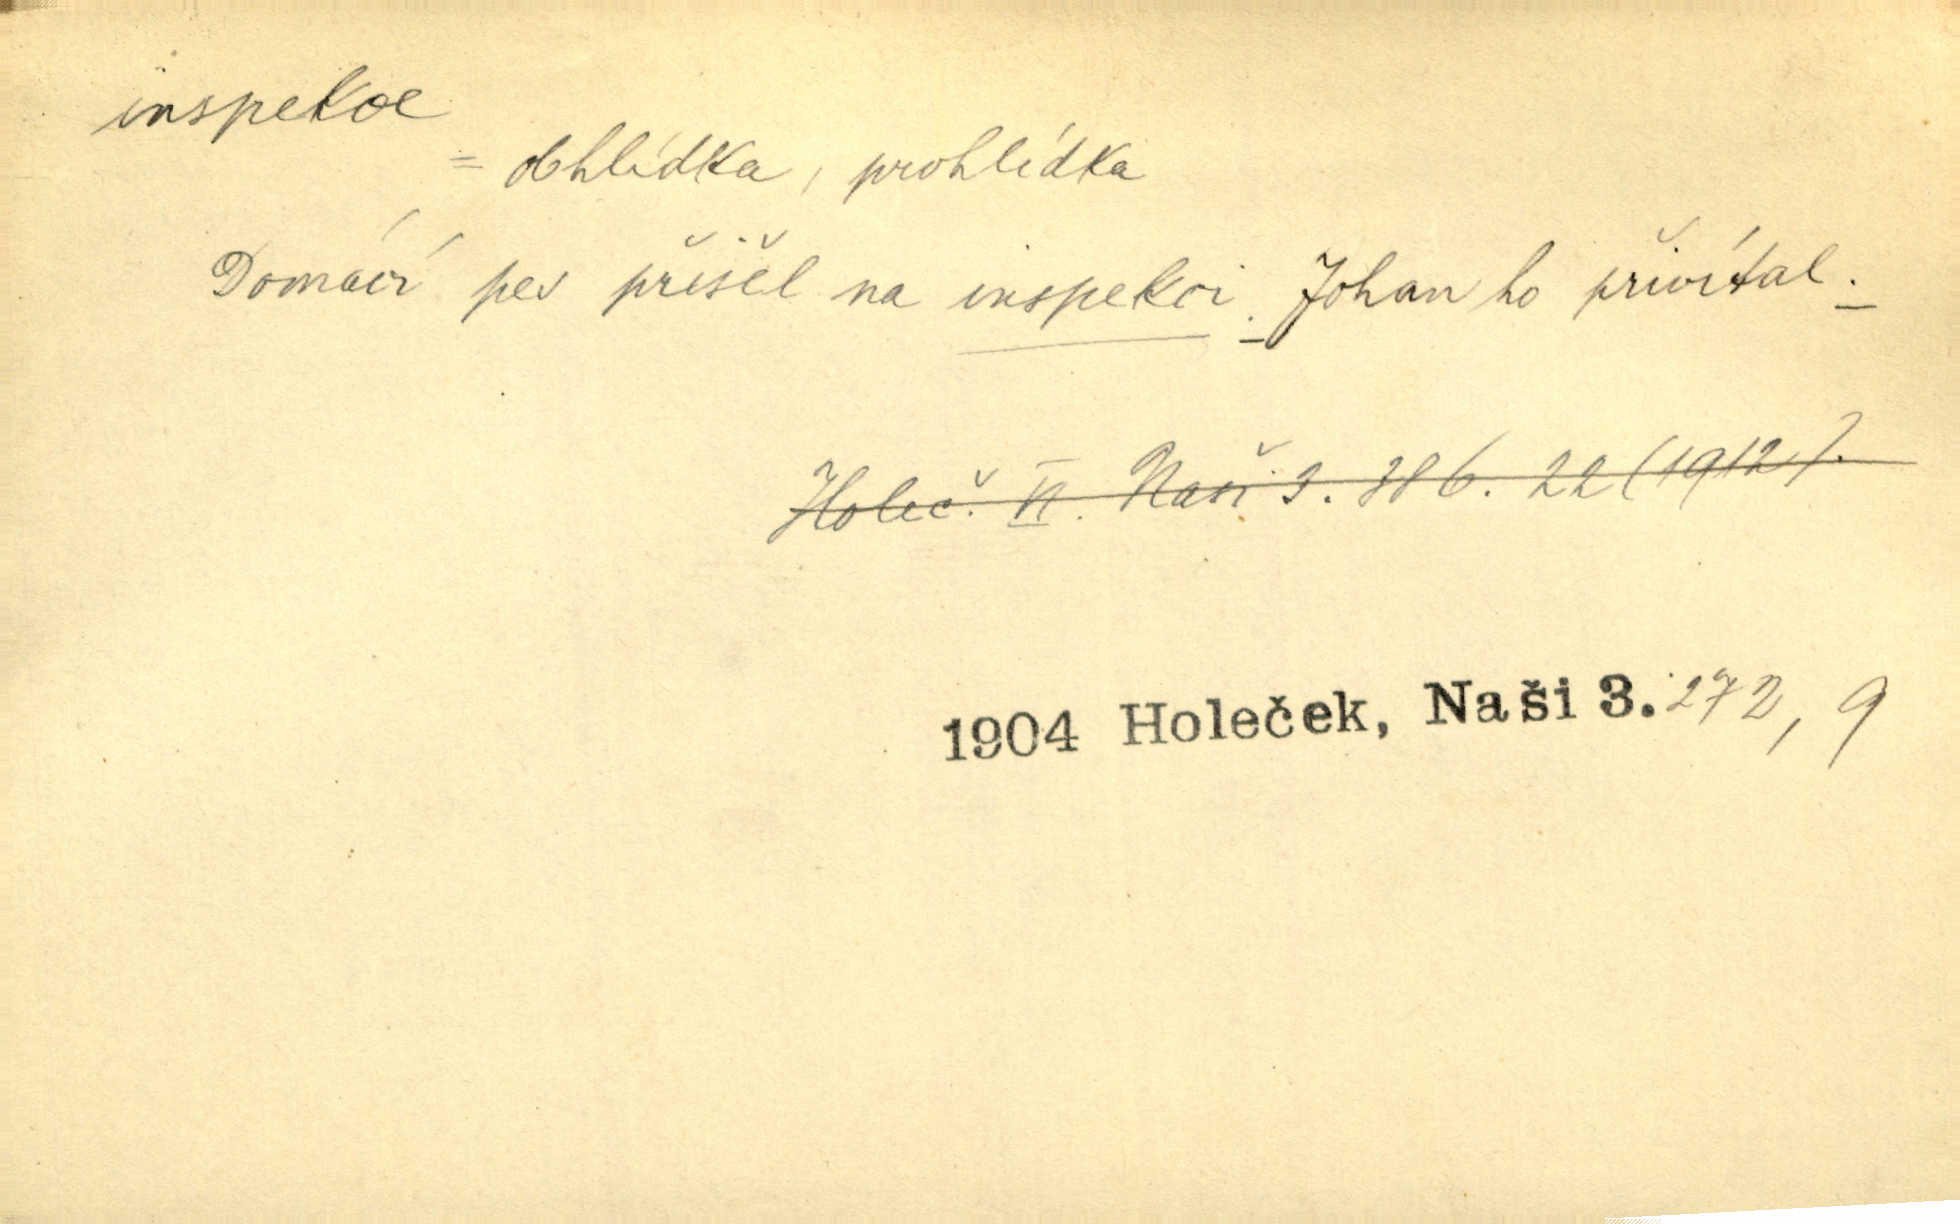 inspekce
= obhlídka, prohlídka
Domácí pes přišel na inspekci. Johan ho přivítal.
Holeč. VI. Naši 3. 386. 22 (1912).
1904 Holeček, Naši 3. 272, 9